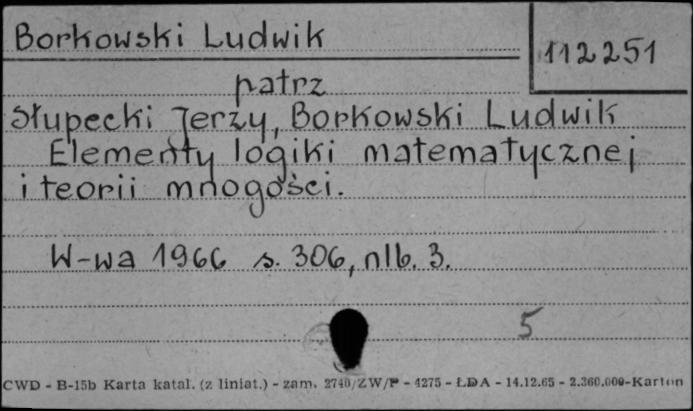 Borkowski Ludwik
112251
patrz
Słupecki Jerzy, Borkowski Ludwik
Elementy logiki matematycznej
i teorii mnogości.
W-wa 1966 s. 306, nlb. 3.
5
CWD - B-15b Karta katal. (z liniat.) - zam. 2740/ZW/P - 4275 - ŁDA - 14.12.65 - 2.360.000-Karton